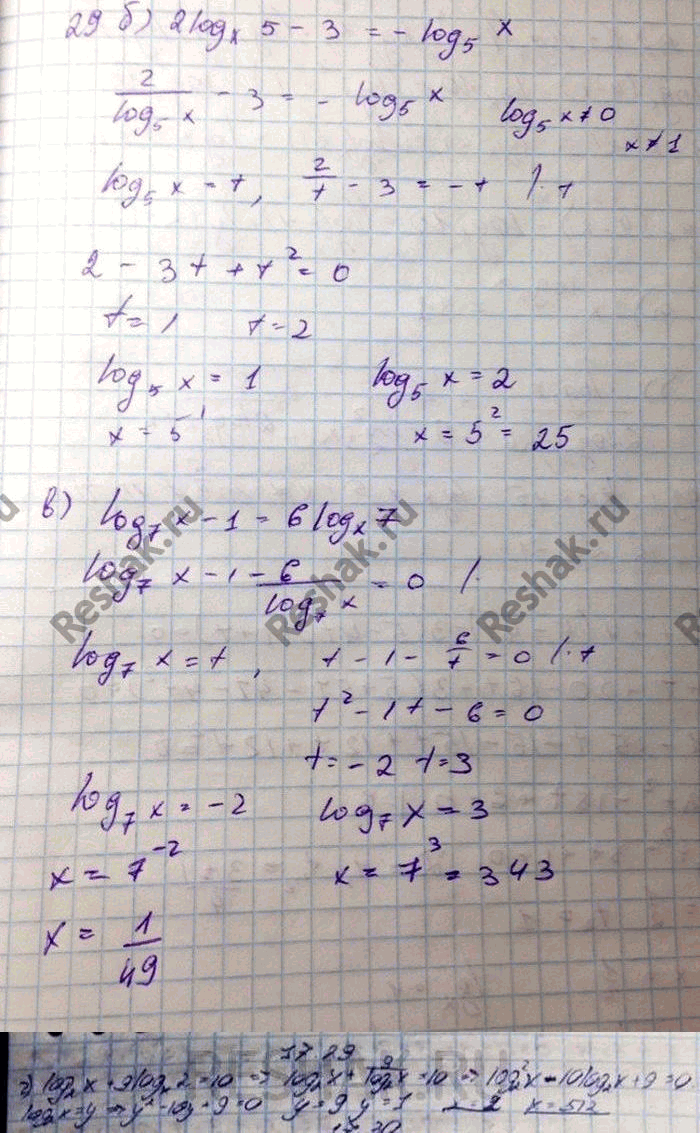 29 б) 2log_x 5 - 3 = - log_5 x
2/log_5 x - 3 = - log_5 x    log_5 x ≠ 0
x ≠ 1
log_5 x = t, 2/t - 3 = -t |·t
2 - 3t + t² = 0
t = 1    t = 2
log_5 x = 1    log_5 x = 2
x = 5¹    x = 5² = 25
в) log_7 x - 1 = 6 log_x 7
log_7 x - 1 - 6/log_7 x = 0 |·
log_7 x = t, t - 1 - 6/t = 0 |·t
t² - 1t - 6 = 0
t = -2 t = 3
log_7 x = -2    log_7 x = 3
x = 7⁻²    x = 7³ = 343
x = 1/49
Reshak.ru Reshak.ru Reshak.ru
17.29
г) log_2 x + 9 log_x 2 = 10 => log_2 x + 9/log_2 x = 10 => log_2² x - 10 log_2 x + 9 = 0
log_2 x = y => y² - 10y + 9 = 0 y = 9 y = 1 x = 2 x = 512
17.30